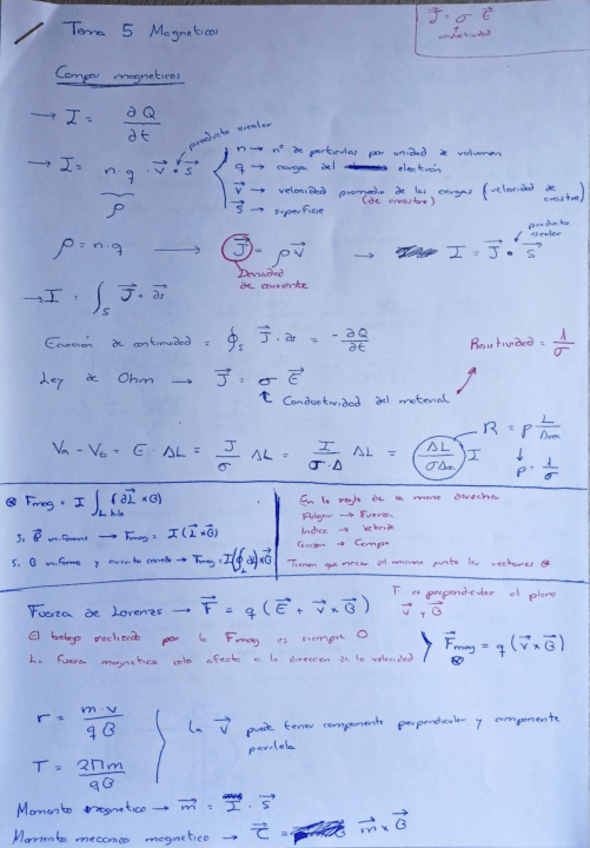 J⃗ = σ E⃗
↑
conductividad
Tema 5 Magneticos
Campos magneticos
→ I = ∂Q/∂t
producto escalar
→ I = n·q · v⃗ • s⃗
ρ
n → nº de particulas por unidad de volumen
q → carga del electrón
v⃗ → velocidad promedio de las cargas (velocidad de arrastre)
(de arrastre)
s⃗ → superficie
ρ = n·q → J⃗ = ρv⃗ → I = J⃗ • s⃗
producto escalar
Densidad de corriente
→ I = ∫_S J⃗ · ∂s⃗
Ecuación de continuidad = ∮_S J⃗ · ∂s = -∂Q/∂t
Resistividad = 1/σ
Ley de Ohm → J⃗ = σ E⃗
↑ Conductividad del material
Va - Vb = E · ΔL = J/σ ΔL = I/(σ·A) ΔL = (ΔL/σA) I
R = ρ L/Area
↓
ρ = 1/σ
⊗ Fmag = I ∫_L (∂L⃗ × B)
hilo
Si B⃗ uniforme → Fmag = I (L⃗ × B)
Si B uniforme y circuito cerrado → Fmag = I(∮_L dl) × B⃗
En la regla de la mano derecha
Pulgar → Fuerza
Indice → Velocidad
Corazon → Campo
Tienen que nacer del mismo punto los vectores ⊗
Fuerza de Lorenzs → F⃗ = q (E⃗ + v⃗ × B⃗)
F es perpendicular al plano v⃗ y B⃗
El trabajo realizado por la Fmag es siempre 0
La fuerza magnetica solo afecta a la direccion de la velocidad
F⃗mag = q (v⃗ × B⃗)
⊗
r = m·v/qB
T = 2πm/qB
La v⃗ puede tener componente perpendicular y componente paralela
Momento magnetico → m⃗ = I · s⃗
Momento mecanico magnetico → τ⃗ = m⃗ × B⃗